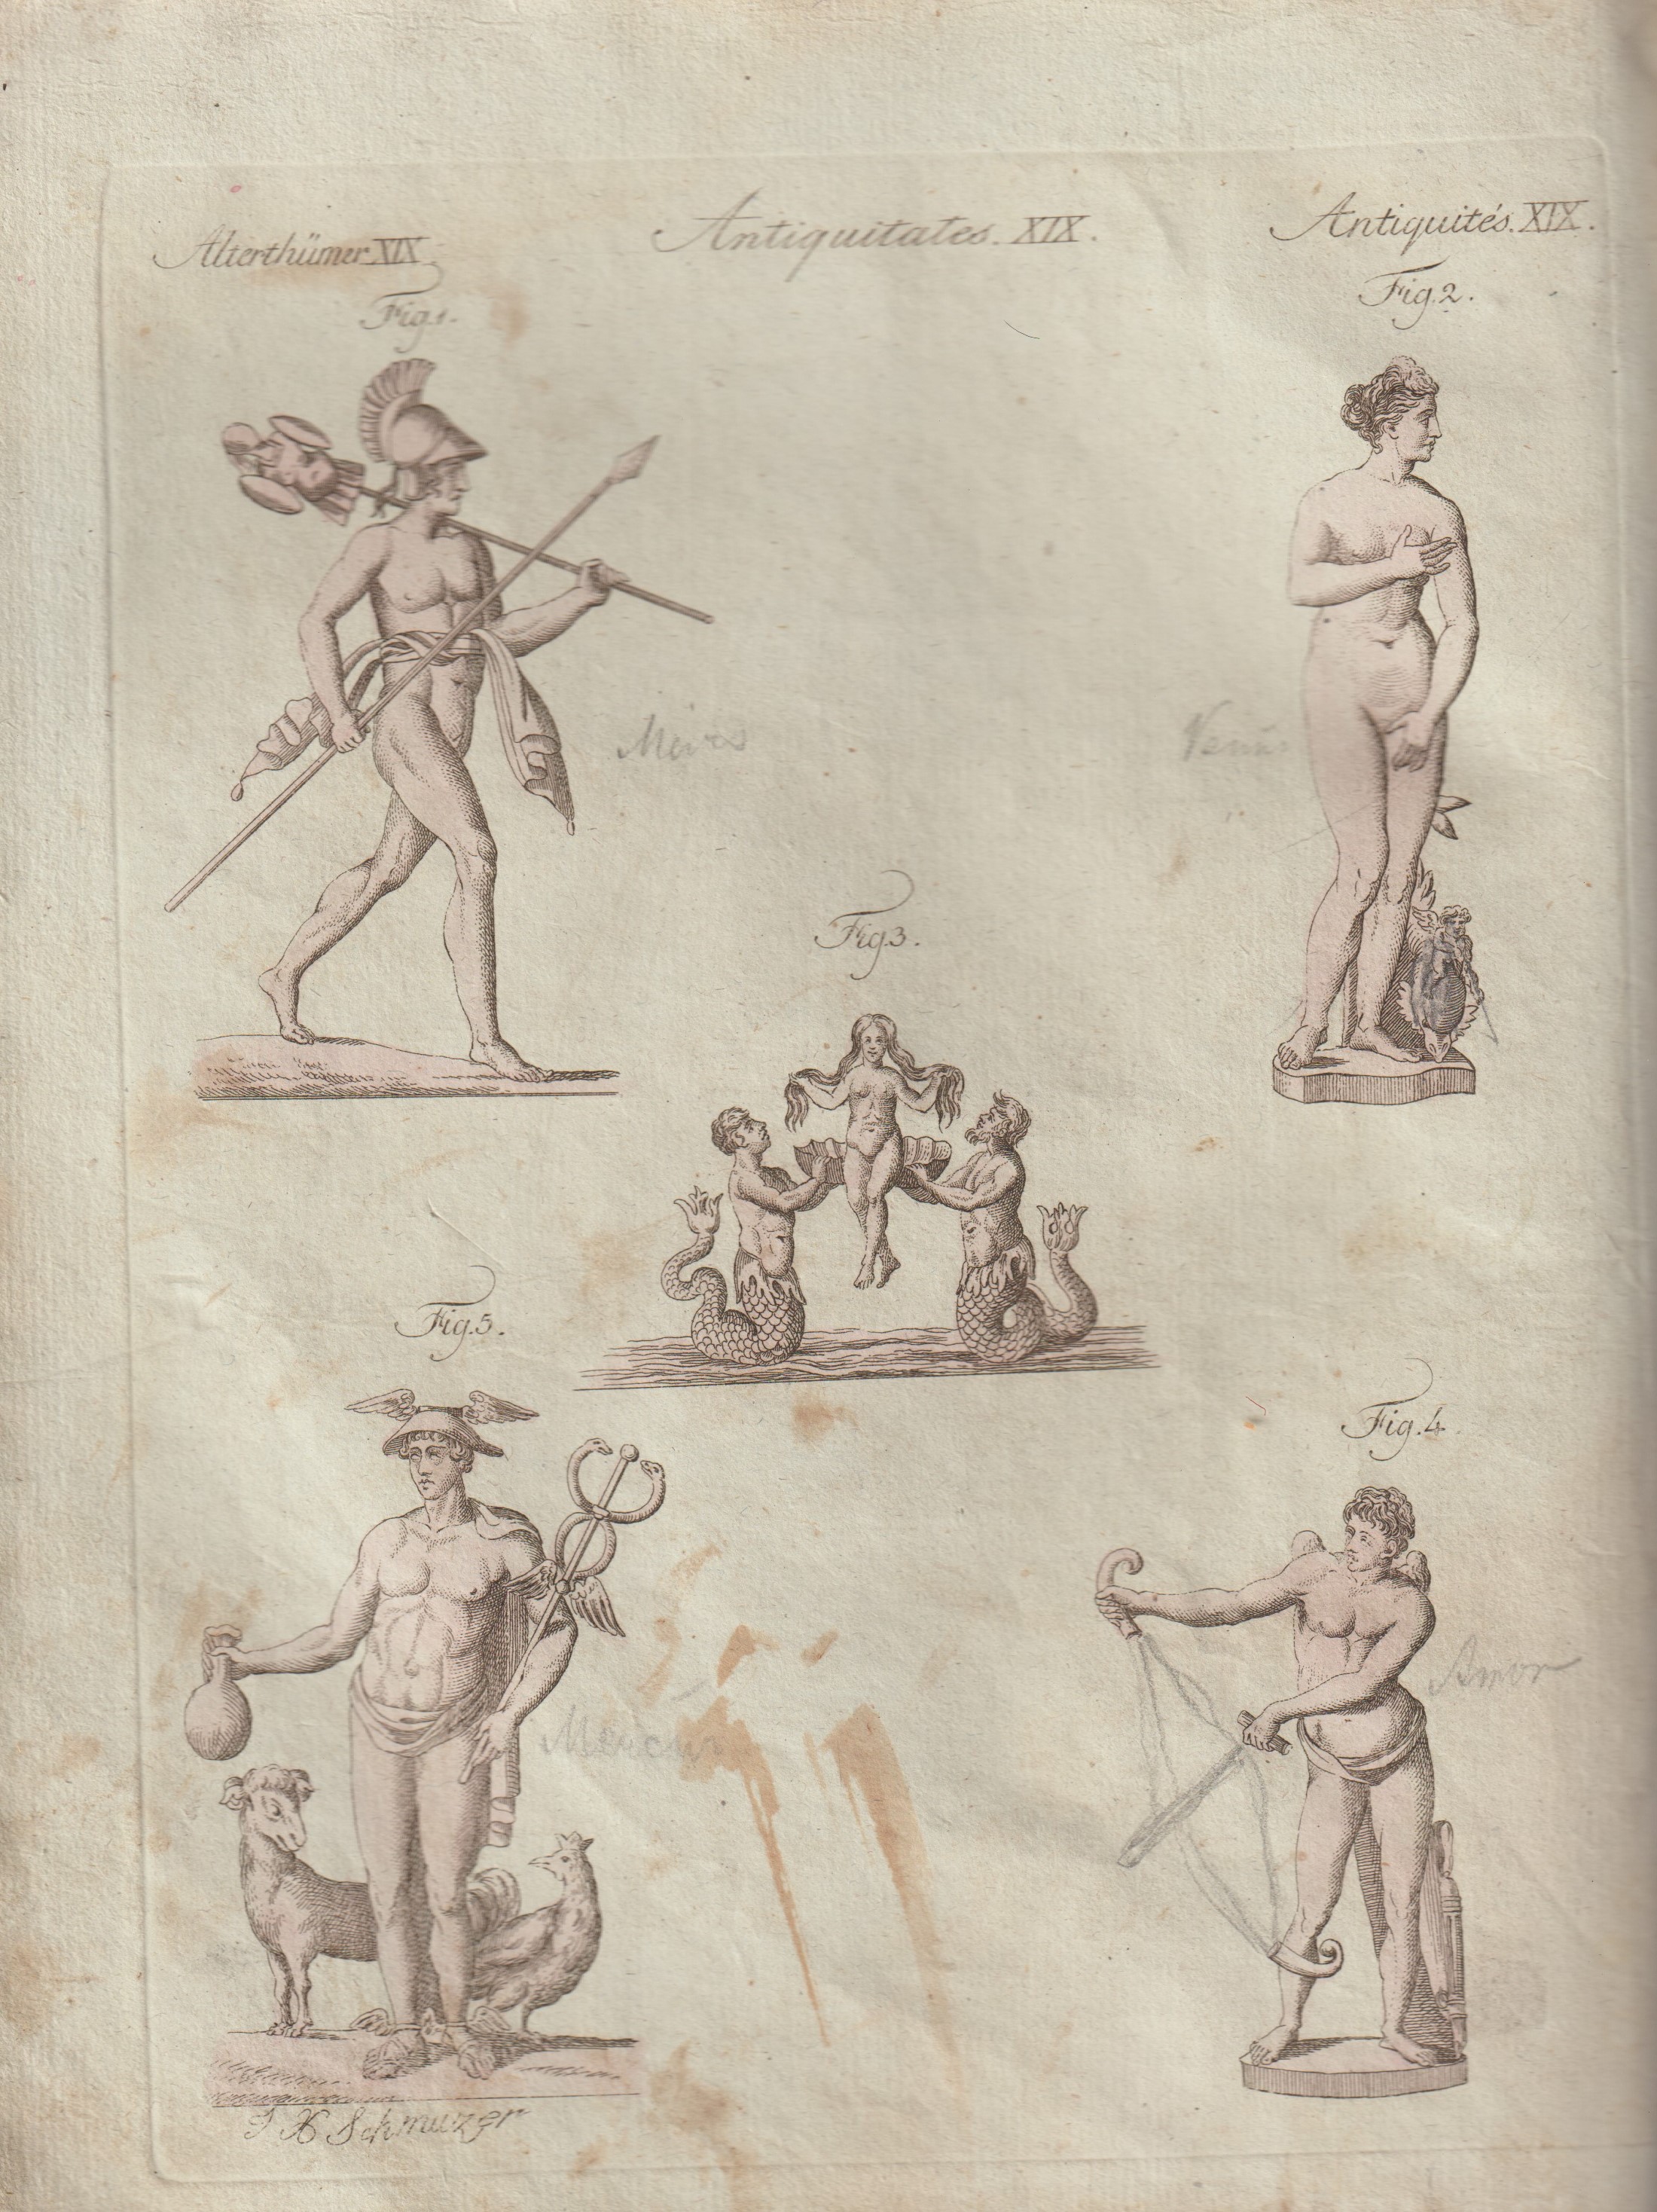 Alterthümer XIX.
Antiquitates. XIX.
Antiquités. XIX.
Fig 1.
Fig. 2.
Mars
Venus
Fig. 3.
Fig. 5.
Fig. 4.
Amor
Mercur
J X Schmuzer